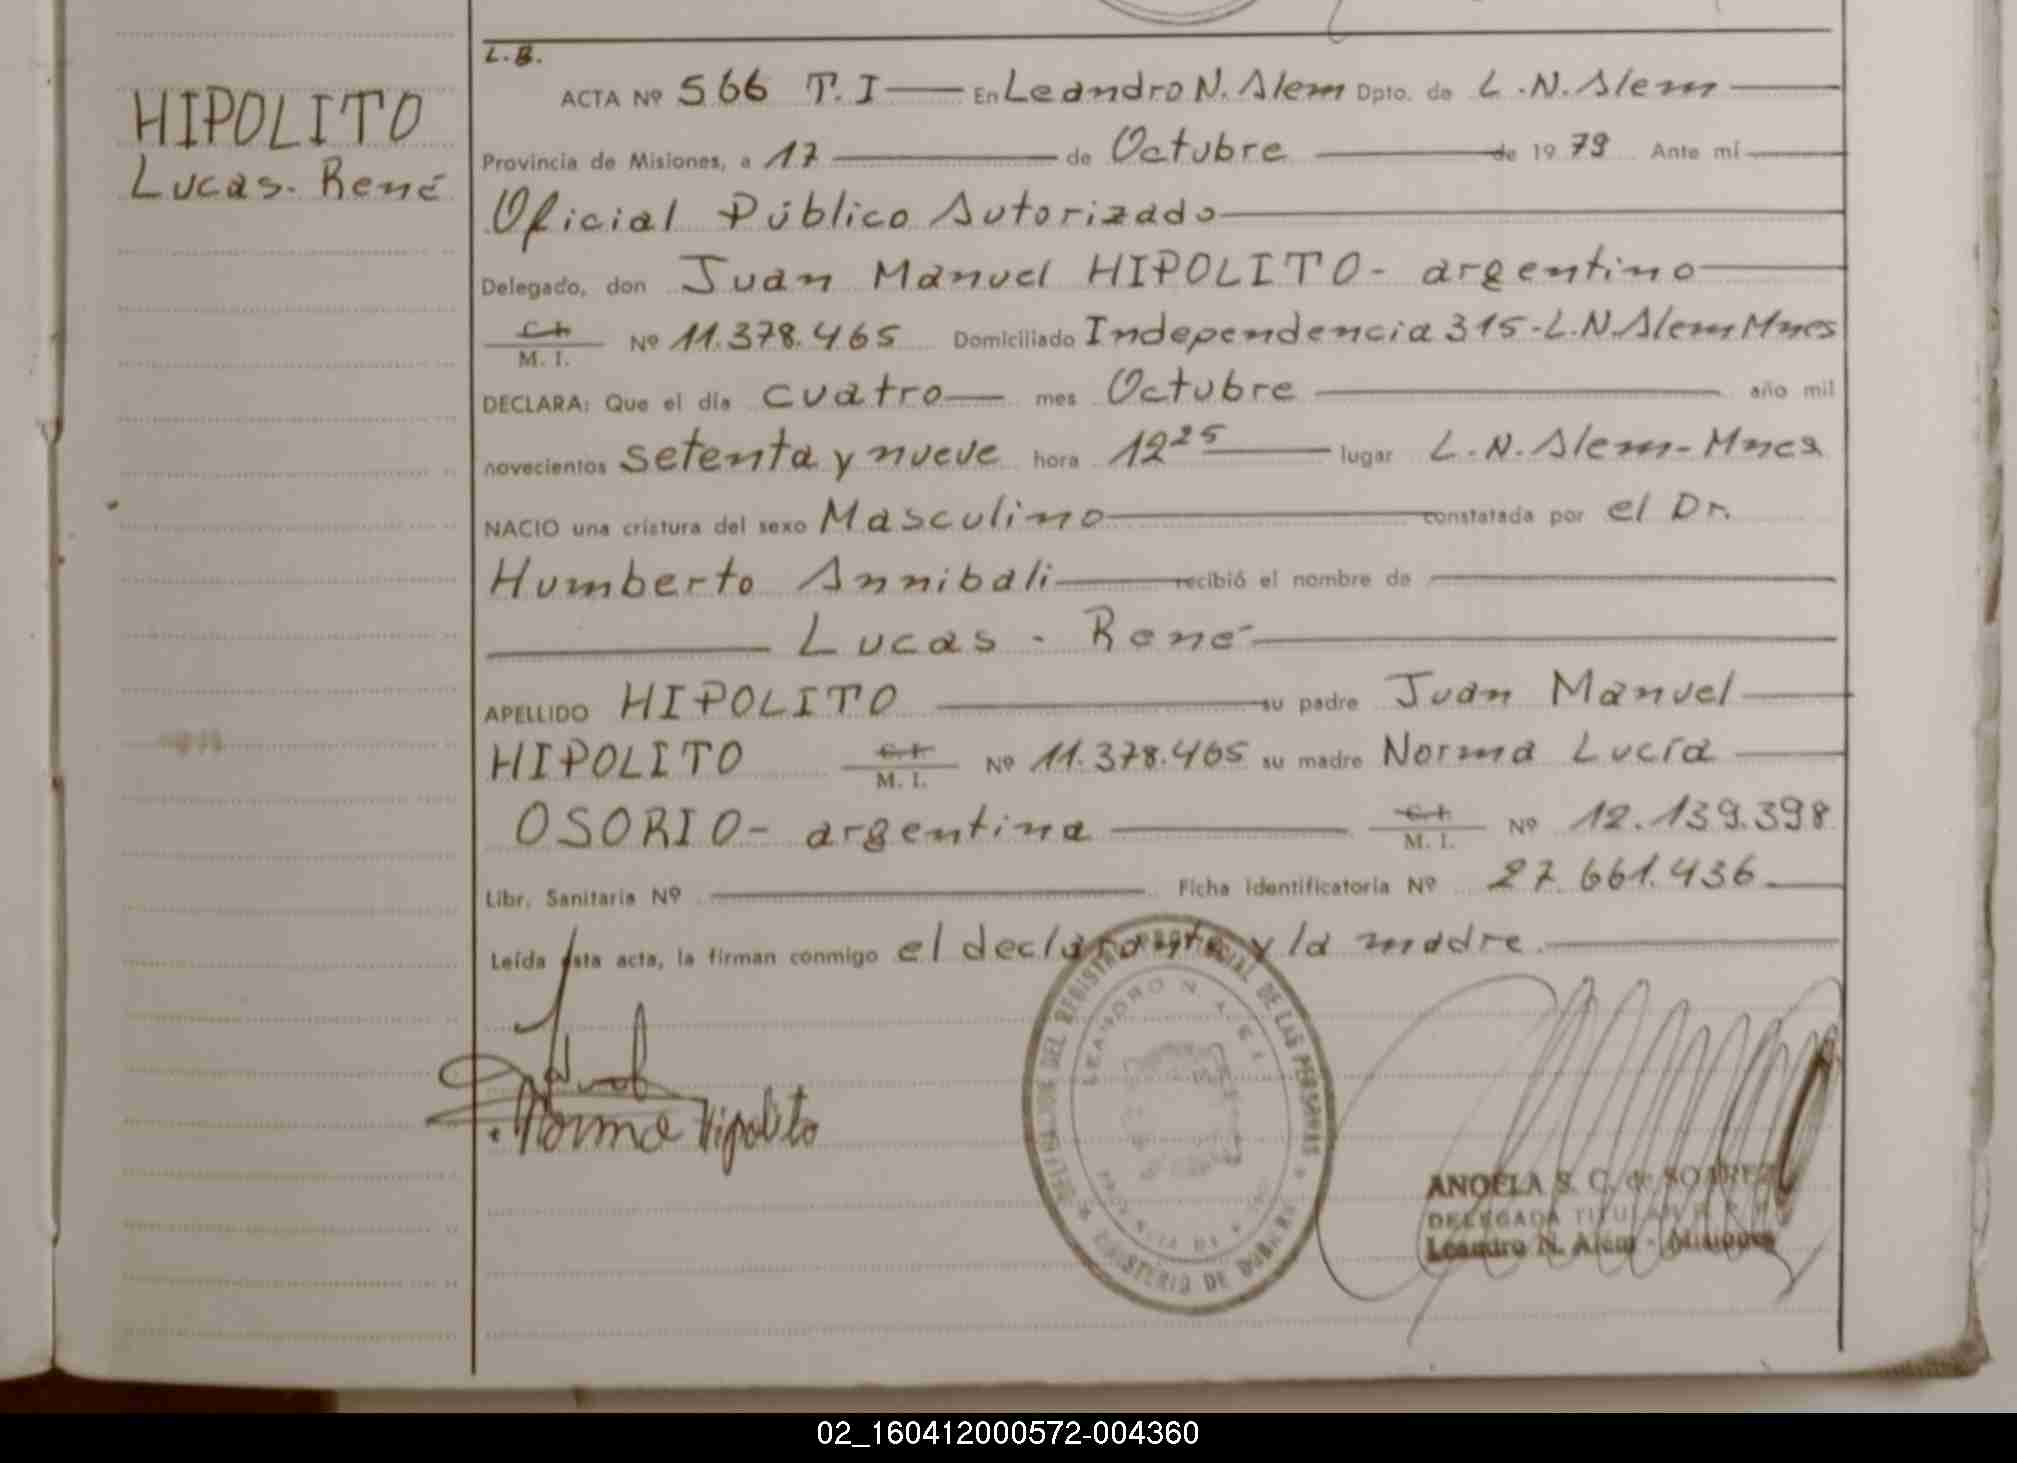 HIPOLITO
Lucas- René
L.B.
ACTA Nº 566 T.I En Leandro N. Alem Dpto. de L.N. Alem
Provincia de Misiones, a 17 de Octubre de 1979 Ante mí
Oficial Público Autorizado
Delegado, don Juan Manuel HIPOLITO- argentino
C.I. M. I. Nº 11.378.465 Domiciliado Independencia 315-L.N. Alem Mnes
DECLARA: Que el día cuatro mes Octubre año mil
novecientos setenta y nueve hora 12 25 lugar L.N. Alem-Mnes
NACIO una criatura del sexo Masculino constatada por el Dr.
Humberto Annibali recibió el nombre de
Lucas - René
APELLIDO HIPOLITO su padre Juan Manuel
HIPOLITO C.I. M. I. Nº 11.378.465 su madre Norma Lucía
OSORIO- argentina C.I. M. I. Nº 12.139.398
Libr. Sanitaria Nº Ficha identificatoria Nº 27.661.436
Leída esta acta, la firman conmigo el declarante y la madre.
Norma Hipolito
DEL REGISTRO PROVINCIAL DE LAS PERSONAS
LEANDRO N. ALEM
MINISTERIO DE GOBIERNO
ANGELA S. C. de SOAREZ
DELEGADA TITULAR
Leandro N. Alem - Misiones
02_160412000572-004360